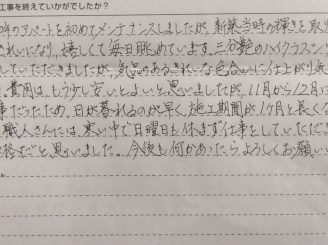 工事を終えていかがでしたか?
年のアパートを初めてメンテナンスしましたが、新築当時の輝きを取り
きれいになり、嬉しくて毎日眺めています。三分艶のハイクラスシ
していただきましたが、気品のあるきれいな色合いに仕上がり
費用はもう少し安いとよいと思いましたが、11月から12月に
事だったため、日が暮れるのが早く、施工期間が1ヶ月と長く
職人さんには、寒い中で日曜日も休まず仕事をしていただき
格だと思いました。今後も何かあったらよろしくお願い